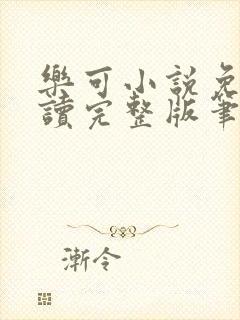 樂可小說免
讀完整版筆
漸令